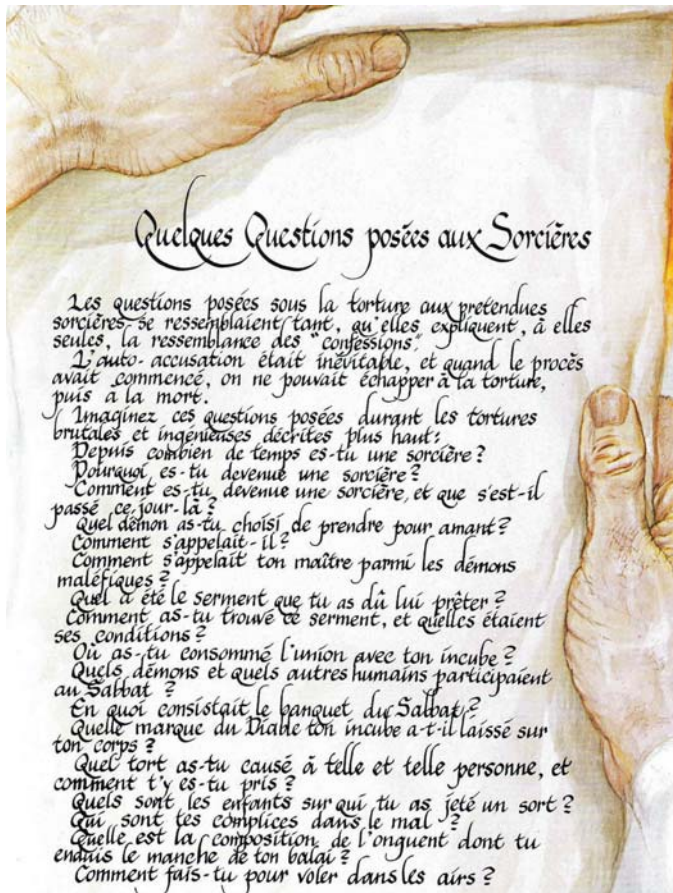 Quelques Questions posées aux Sorcières
Les questions posées sous la torture aux prétendues
sorcières se ressemblaient tant, qu'elles expliquent, à elles
seules, la ressemblance des "confessions".
L'auto-accusation était inévitable, et quand le procès
avait commencé, on ne pouvait échapper à la torture,
puis à la mort.
Imaginez ces questions posées durant les tortures
brutales et ingénieuses décrites plus haut:
Depuis combien de temps es-tu une sorcière?
Pourquoi es-tu devenue une sorcière?
Comment es-tu devenue une sorcière, et que s'est-il
passé ce jour-là?
Quel démon as-tu choisi de prendre pour amant?
Comment s'appelait-il?
Comment s'appelait ton maître parmi les démons
maléfiques?
Quel a été le serment que tu as dû lui prêter?
Comment as-tu trouvé ce serment, et quelles étaient
ses conditions?
Où as-tu consommé l'union avec ton incube?
Quels démons et quels autres humains participaient
au Sabbat?
En quoi consistait le banquet du Sabbat?
Quelle marque du Diable ton incube a-t-il laissé sur
ton corps?
Quel tort as-tu causé à telle et telle personne, et
comment t'y es-tu pris?
Quels sont les enfants sur qui tu as jeté un sort?
Qui sont tes complices dans le mal?
Quelle est la composition de l'onguent dont tu
enduis le manche de ton balai?
Comment fais-tu pour voler dans les airs?